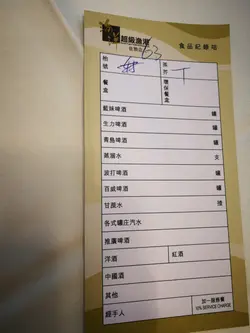 超級漁港
食品紀錄咭
63
枱號
茶芥 T
餐盒
環保餐盒
藍妹啤酒 罐
生力啤酒 罐
青島啤酒 罐
蒸溜水 支
波打啤酒 罐
百威啤酒 罐
甘蔗水
各式罐庄汽水
推廣啤酒
洋酒 紅酒
中國酒
其他
經手人 加一服務費
10% SERVICE CHARGE